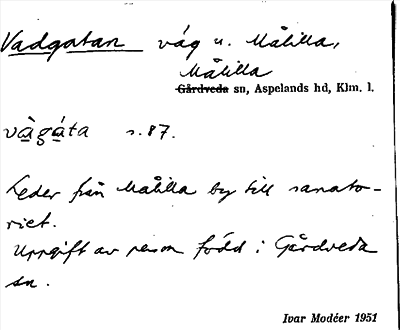 Vadgatan väg u. Målilla,
Målilla
Gårdveda sn, Aspelands hd, Klm. l.
vàgáta s. 87.
Leder från Målilla by till sanato-
riet.
Uppgift av person född i Gårdveda
sn.
Ivar Modéer 1951